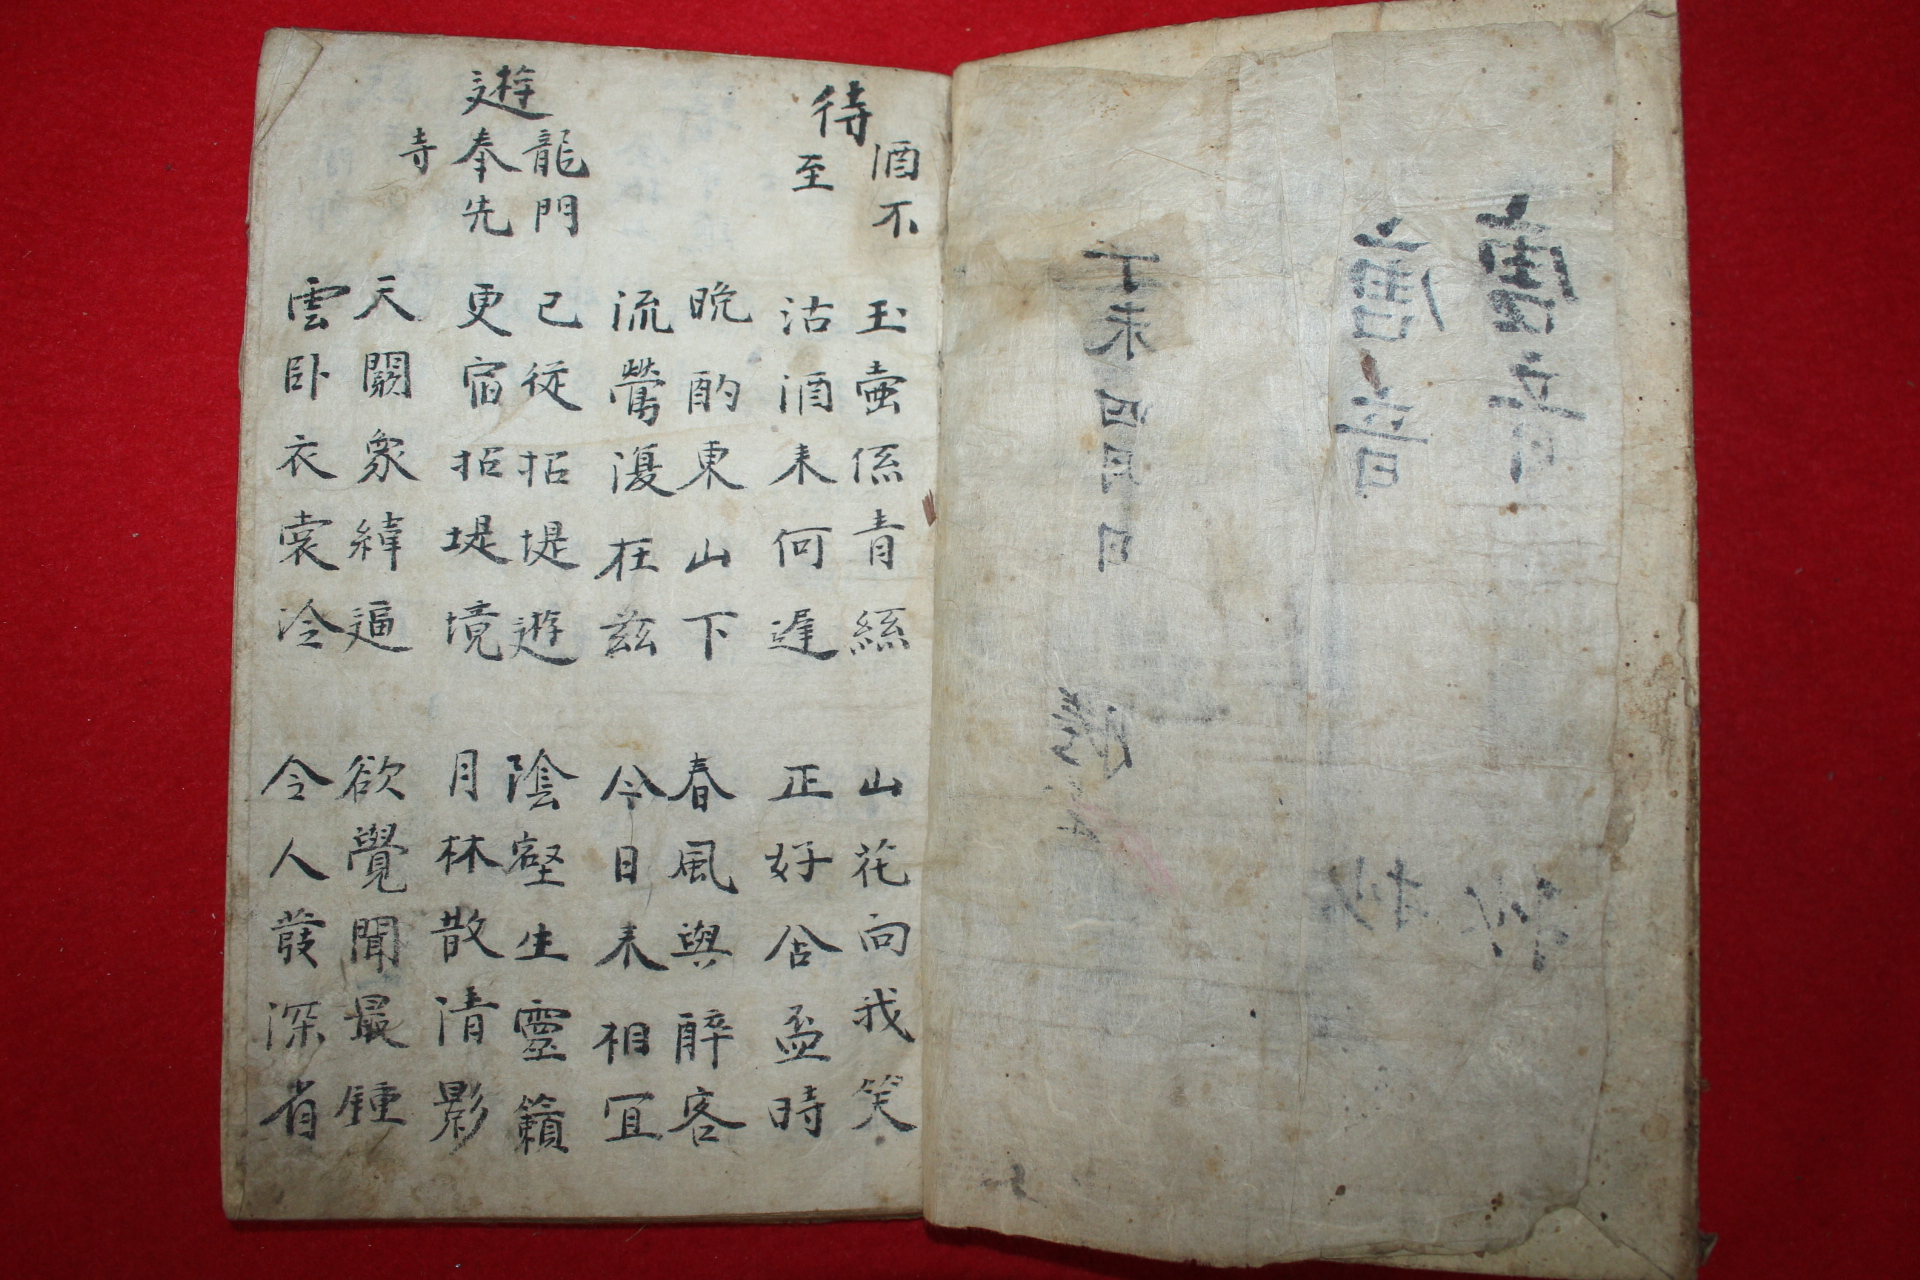 唐音抄
唐音抄
丁未四月日
待酒不至
玉壷係青絲 山花向我笑
沽酒来何遅 正好含盃時
晩酌東山下 春風與醉客
流鶯復在茲 今日来相宜
遊龍門奉先寺
已從招堤遊 陰壑生靈籟
更宿招堤境 月林散清影
天闕象緯逼 欲覺聞最鍾
雲卧衣裳冷 令人發深省